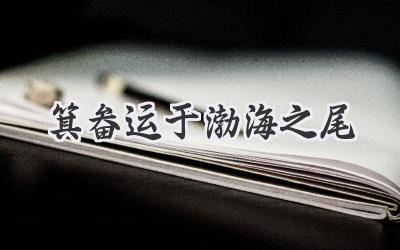 箕畚运于渤海之尾